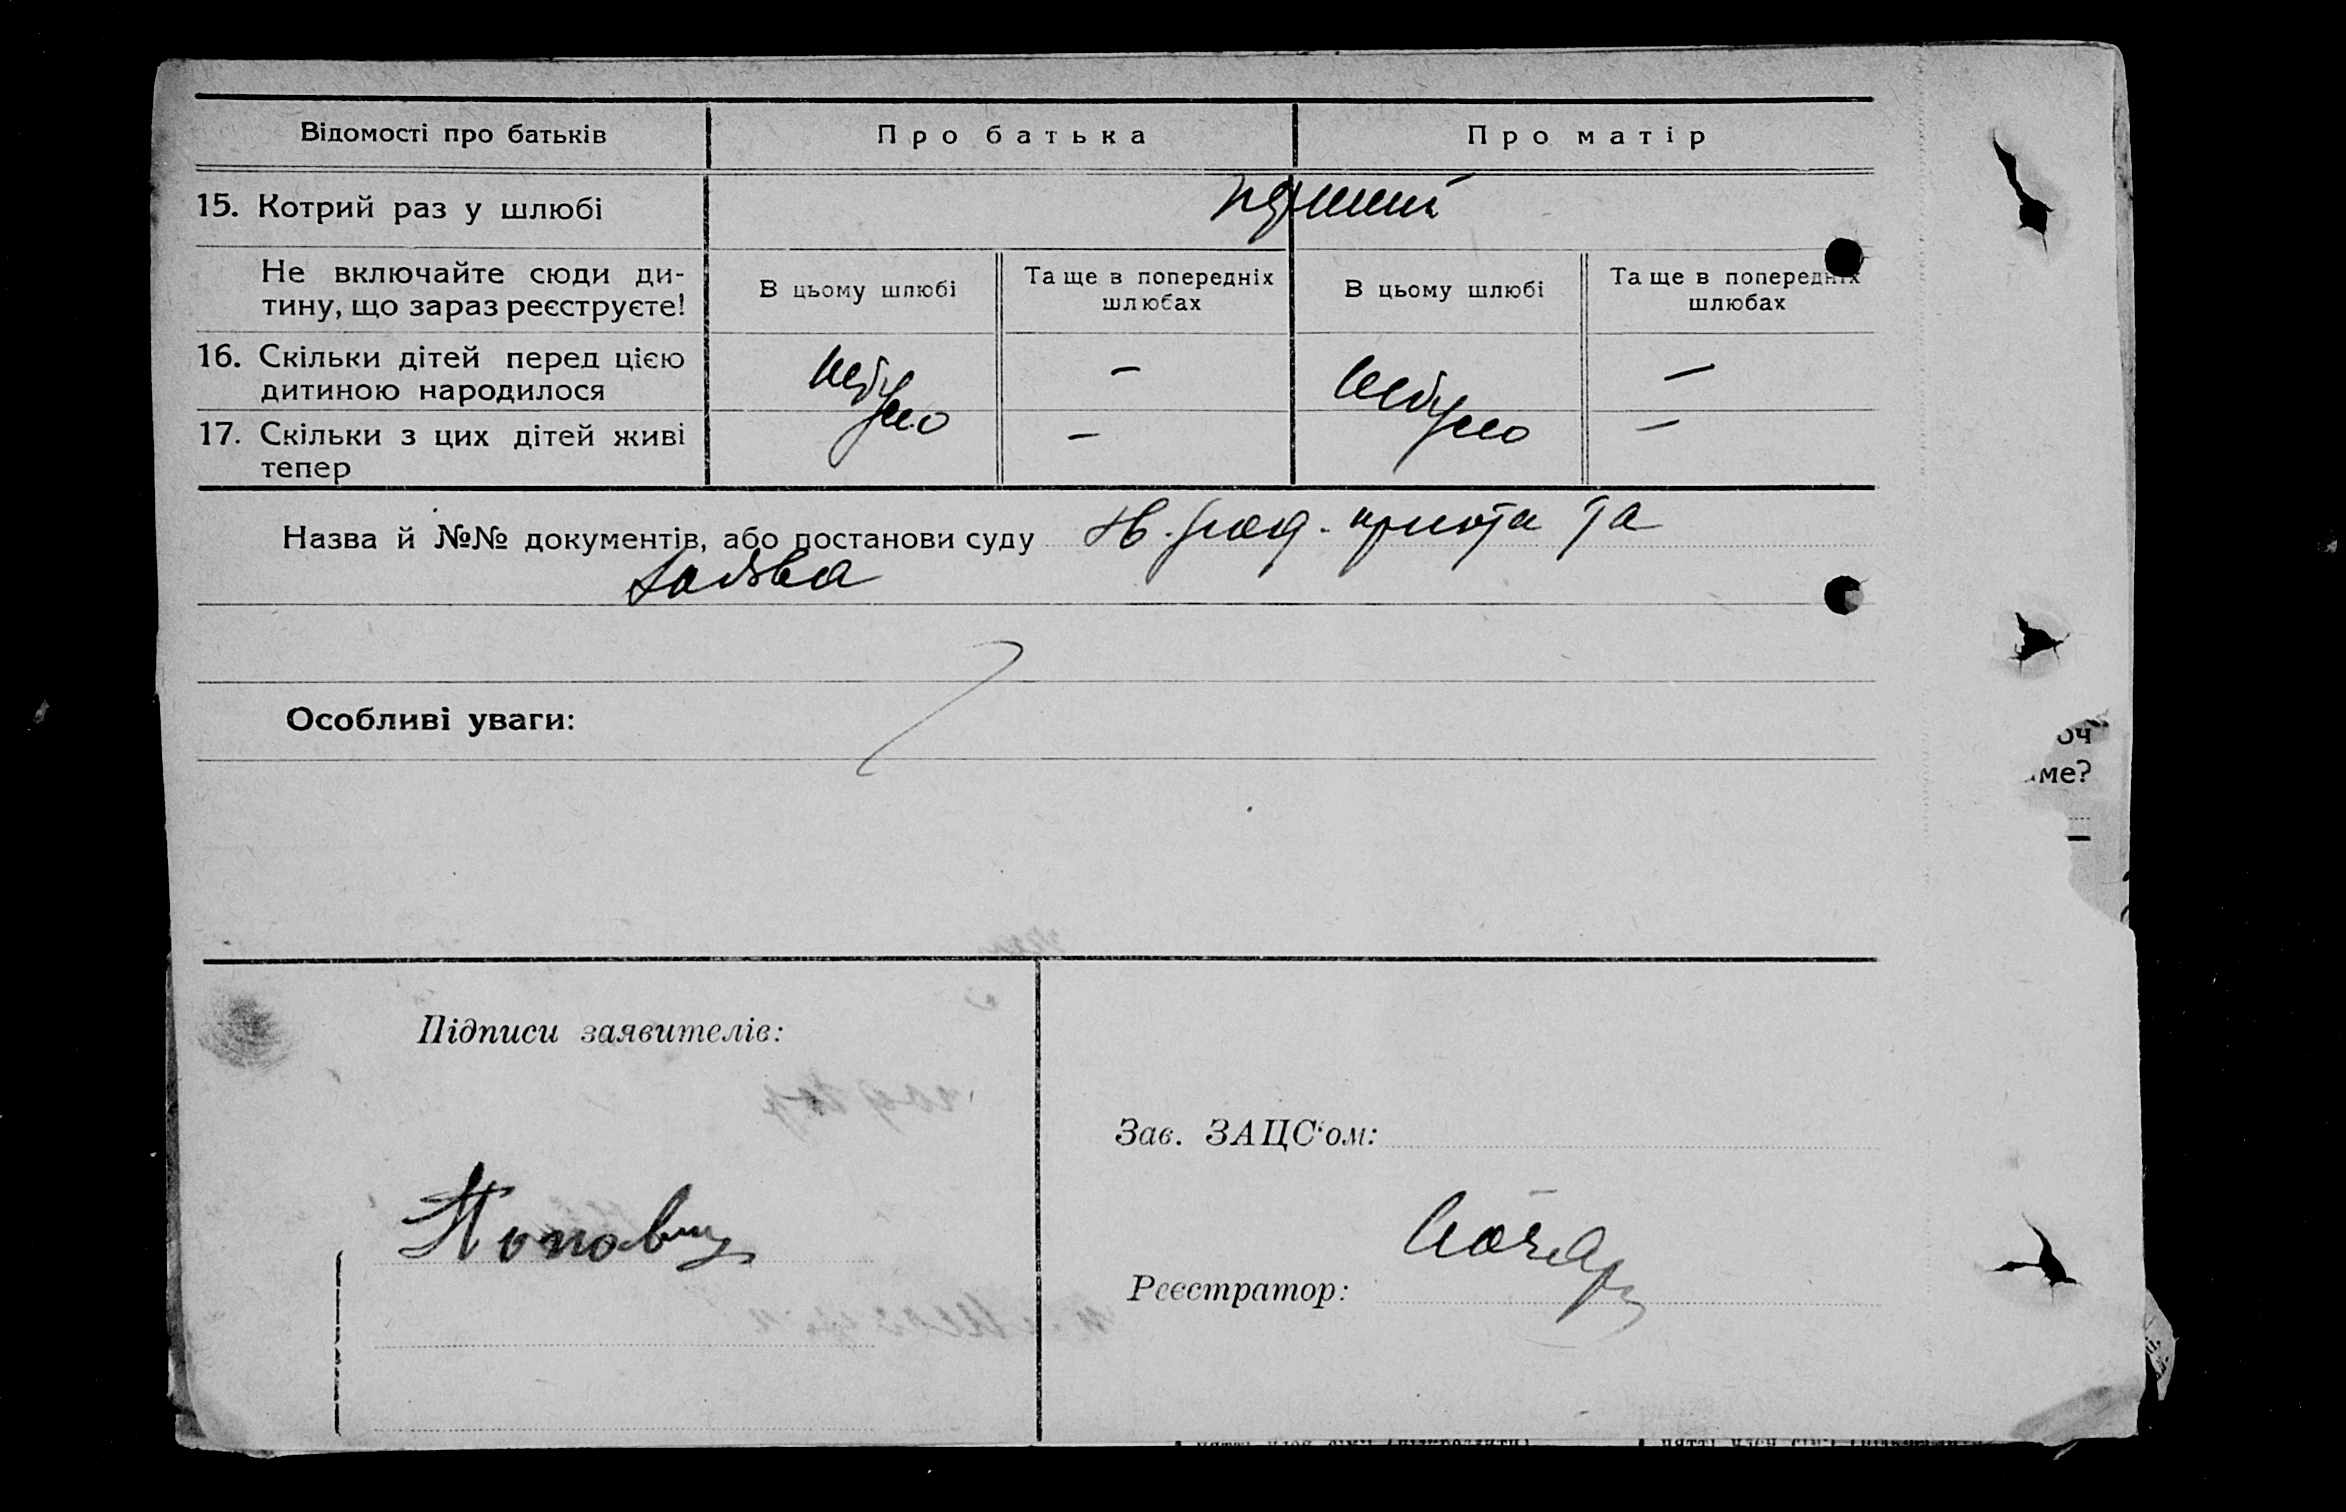 Відомості про батьків
Про батька
Про матір
15. Котрий раз у шлюбі
перший
Не включайте сюди ди-
тину, що зараз реєструєте!
В цьому шлюбі
Та ще в попередніх
шлюбах
В цьому шлюбі
Та ще в попередніх
шлюбах
16. Скільки дітей перед цією
дитиною народилося
небуло
—
небуло
—
17. Скільки з цих дітей живі
тепер
—
—
Назва й №№ документів, або постанови суду
та
заява
Особливі уваги:
оч
ме?
Підписи заявителів:
Зав. ЗАЦС‘ом:
Реєстратор: